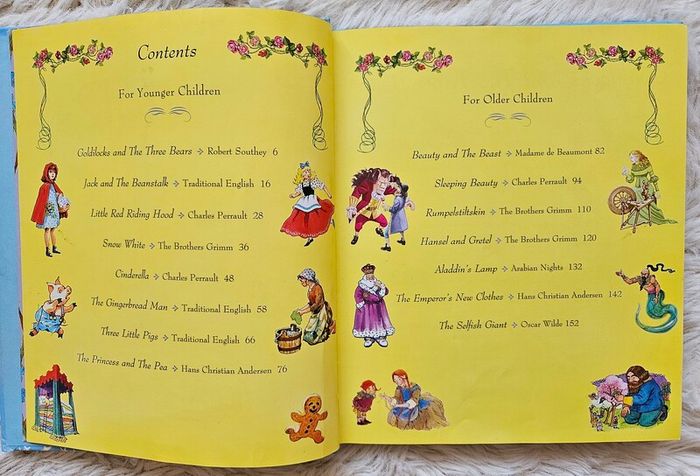 Contents
For Younger Children
Goldilocks and The Three Bears ✣ Robert Southey 6
Jack and The Beanstalk ✣ Traditional English 16
Little Red Riding Hood ✣ Charles Perrault 28
Snow White ✣ The Brothers Grimm 36
Cinderella ✣ Charles Perrault 48
The Gingerbread Man ✣ Traditional English 58
Three Little Pigs ✣ Traditional English 66
The Princess and The Pea ✣ Hans Christian Andersen 76
For Older Children
Beauty and The Beast ✣ Madame de Beaumont 82
Sleeping Beauty ✣ Charles Perrault 94
Rumpelstiltskin ✣ The Brothers Grimm 110
Hansel and Gretel ✣ The Brothers Grimm 120
Aladdin's Lamp ✣ Arabian Nights 132
The Emperor's New Clothes ✣ Hans Christian Andersen 142
The Selfish Giant ✣ Oscar Wilde 152